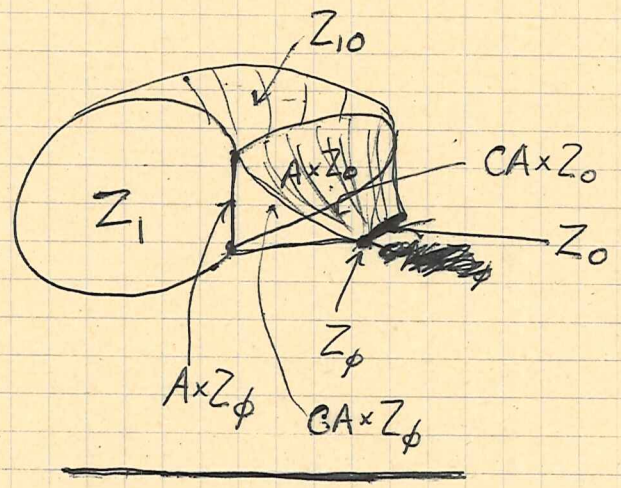 Z₁₀
A×Z₀
CA×Z₀
Z₁
Z₀
Z_φ
A×Z_φ
CA×Z_φ